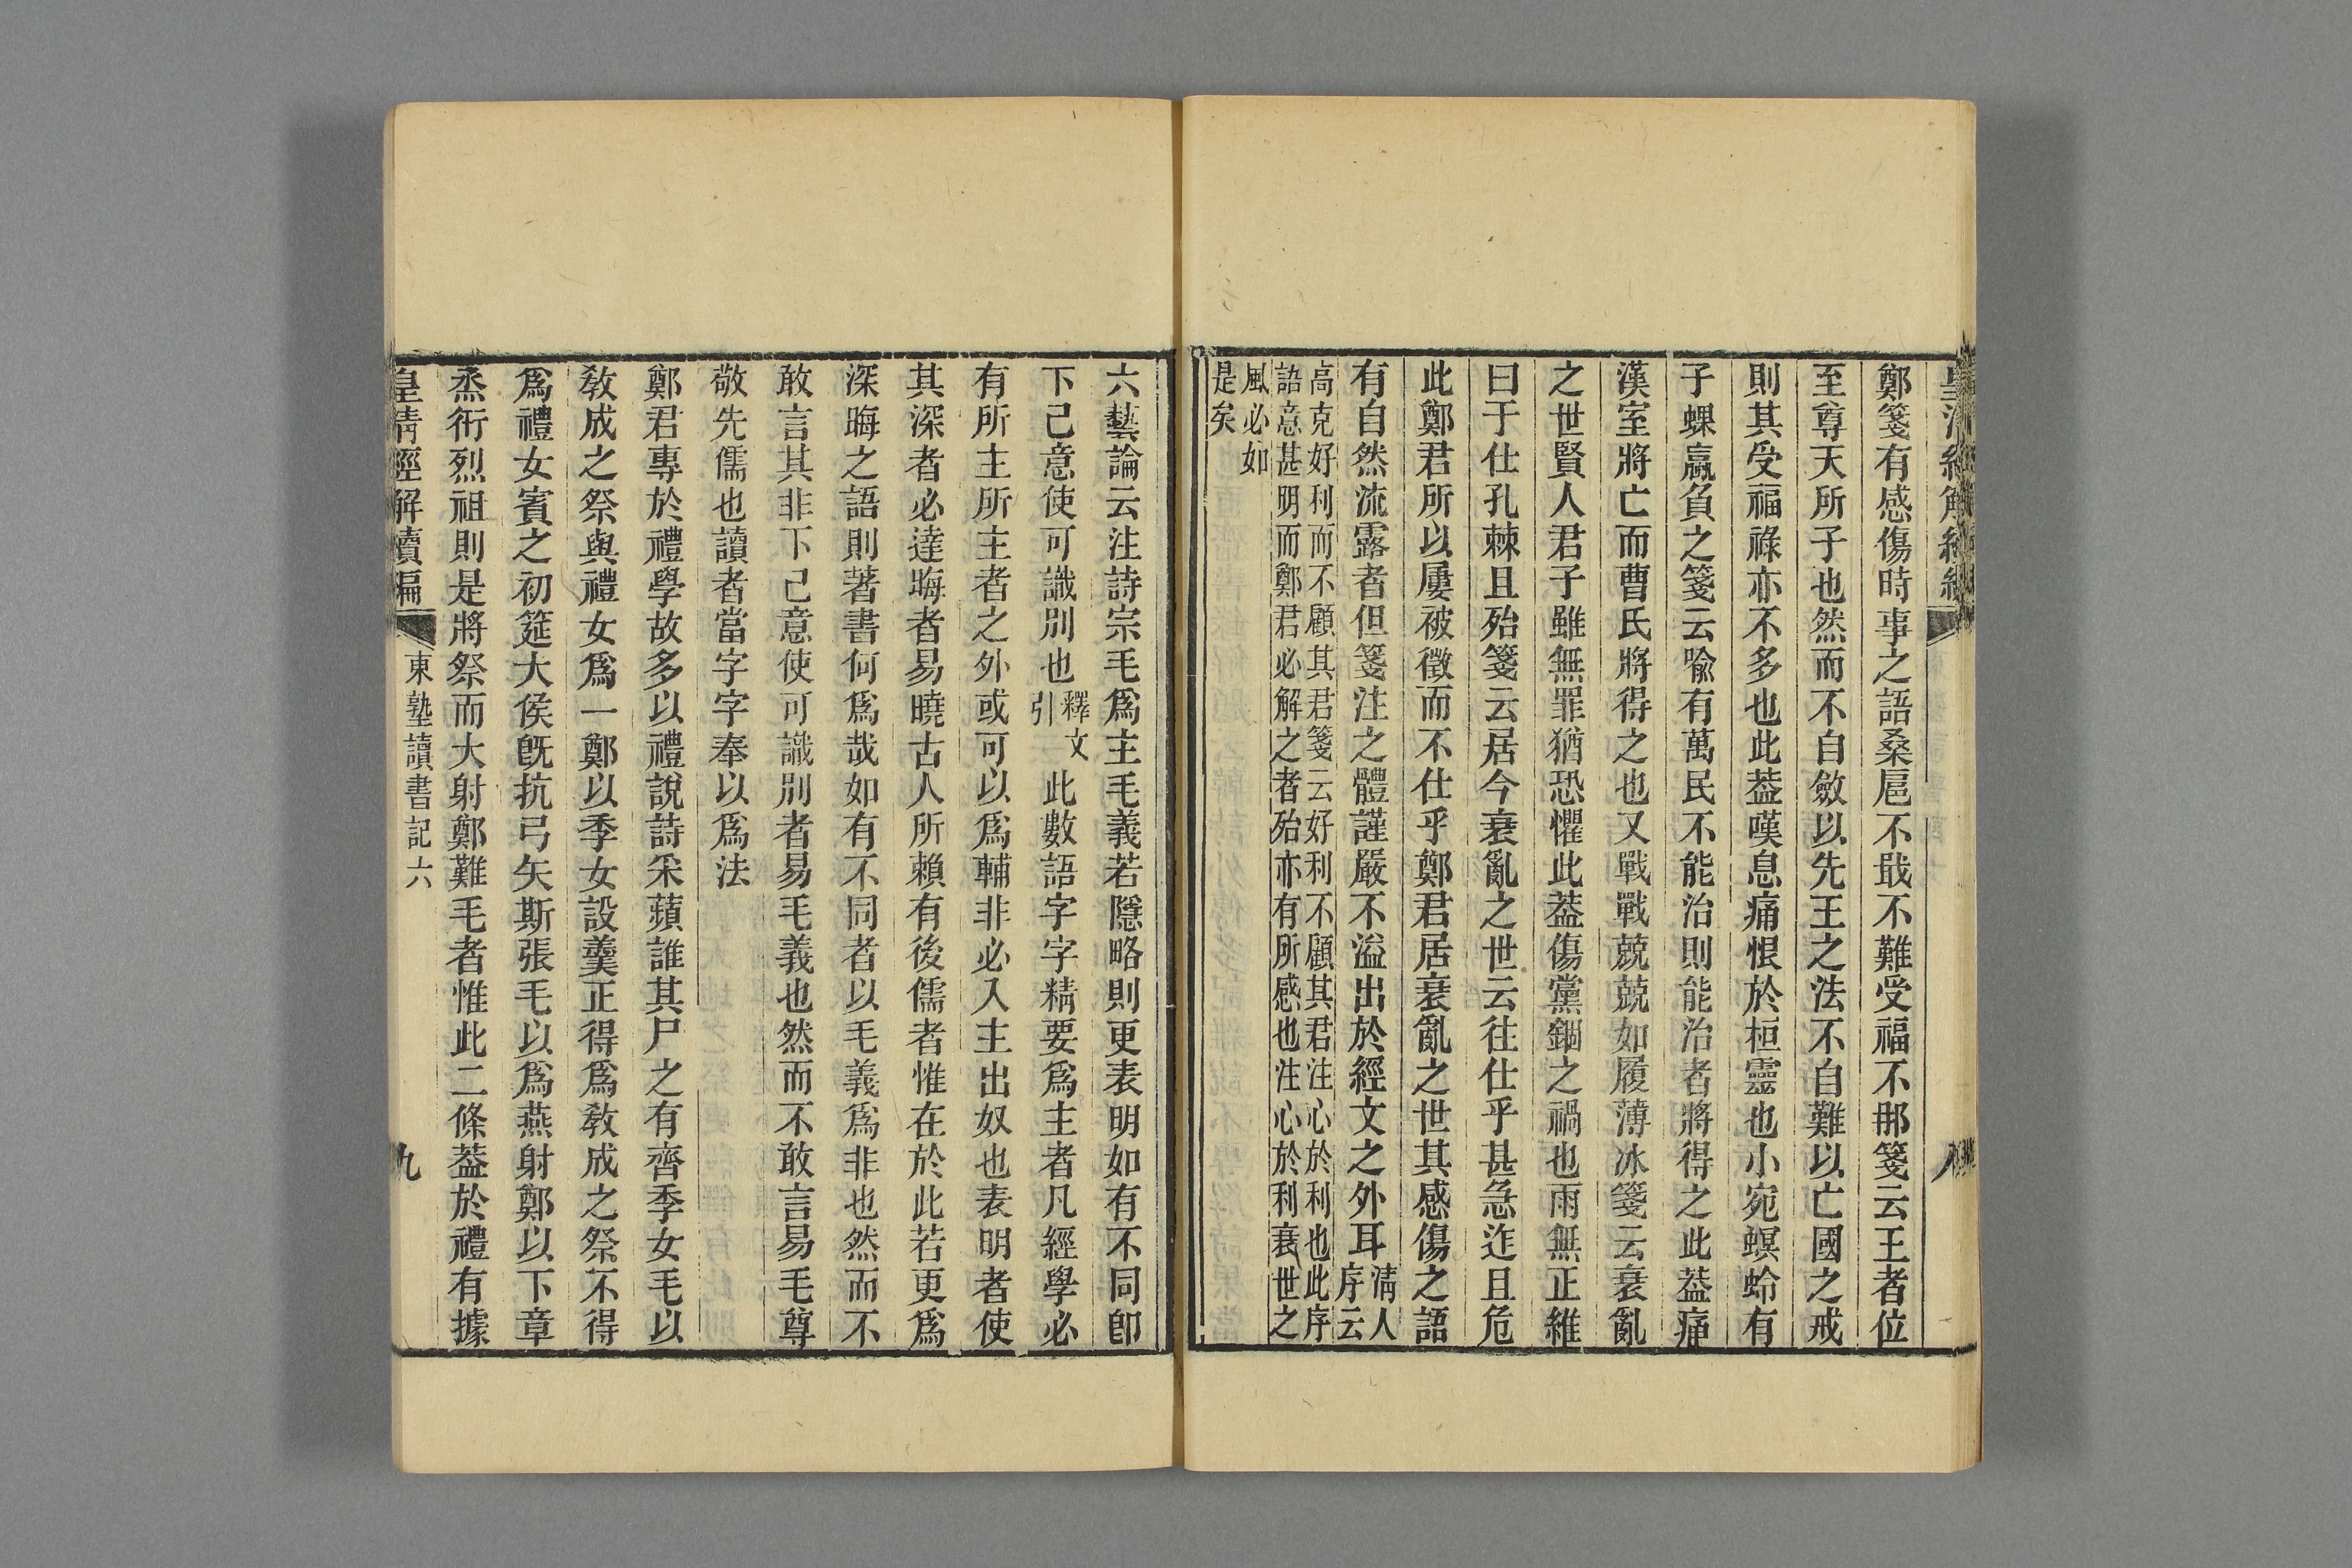 鄭箋有感傷時事之語桑扈不戢不難受福不那箋云王者位
至尊天所子也然而不自斂以先王之法不自難以亡國之戒
則其受福祿亦不多也此葢嘆息痛恨於桓靈也小宛螟蛉有
子蜾蠃負之箋云喻有萬民不能治則能治者將得之此葢痛
漢室將亡而曹氏將得之也又戰戰兢兢如履薄冰箋云衰亂
之世賢人君子雖無罪猶恐懼此葢傷黨錮之禍也雨無正維
曰于仕孔棘且殆箋云居今衰亂之世云往仕乎甚急迮且危
此鄭君所以屢被徵而不仕乎鄭君居衰亂之世其感傷之語
有自然流露者但箋注之體謹嚴不溢出於經文之外耳清人
序云
高克好利而不顧其君箋云好利不顧其君注心於利也此序
語意甚明而鄭君必解之者殆亦有所感也注心於利衰世之
風必如
是矣
六藝論云注詩宗毛爲主毛義若隱略則更表明如有不同卽
下己意使可識別也釋文
引此數語字字精要爲主者凡經學必
有所主所主者之外或可以爲輔非必入主出奴也表明者使
其深者必達晦者易曉古人所賴有後儒者惟在於此若更爲
深晦之語則著書何爲哉如有不同者以毛義爲非也然而不
敢言其非下己意使可識別者易毛義也然而不敢言易毛尊
敬先儒也讀者當字字奉以爲法
鄭君專於禮學故多以禮說詩采蘋誰其尸之有齊季女毛以
敎成之祭與禮女爲一鄭以季女設羹正得爲敎成之祭不得
爲禮女賓之初筵大侯旣抗弓矢斯張毛以爲燕射鄭以下章
烝衎烈祖則是將祭而大射鄭難毛者惟此二條葢於禮有據
皇清經解續編
東塾讀書記六
九